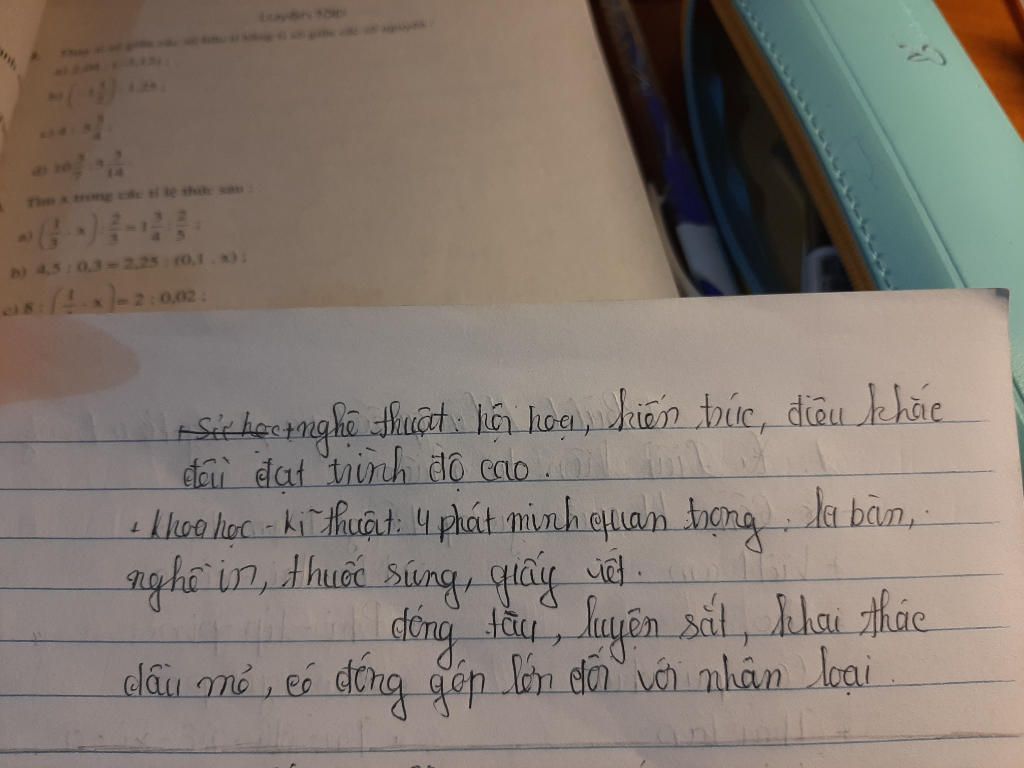 Luyện tập
Thay tỉ số giữa các số hữu tỉ bằng tỉ số giữa các số nguyên :
a) 2,04 : (-3,12) ;
b) (-1 1/2) : 1,25 ;
c) 4 : 5 3/4 ;
d) 10 3/7 : 5 3/14
Tìm x trong các tỉ lệ thức sau :
a) (1/3 . x) : 2/3 = 1 3/4 : 2/5 ;
b) 4,5 : 0,3 = 2,25 : (0,1 . x) ;
c) 8 : ( . x) = 2 : 0,02 ;
+ Sử học + nghệ thuật : hội hoạ, kiến trúc, điêu khắc
đều đạt trình độ cao .
+ khoa học - kĩ thuật : 4 phát minh quan trọng : la bàn,
nghề in, thuốc súng, giấy viết .
đóng tàu, luyện sắt, khai thác
dầu mỏ, có đóng góp lớn đối với nhân loại .